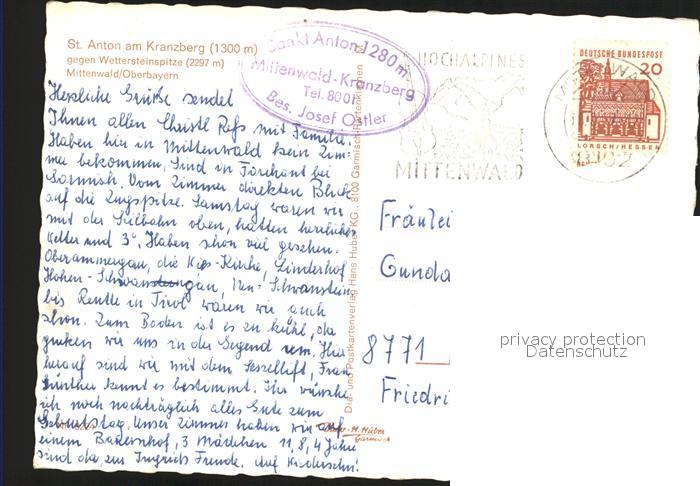 St. Anton am Kranzberg (1300 m)
gegen Wettersteinspitze (2297 m)
Mittenwald/Oberbayern
Sankt Anton 1280 m
Mittenwald-Kranzberg
Tel. 8001
Bes. Josef Ostler
HOCHALPINES
MITTENWALD
DEUTSCHE BUNDESPOST
20
LORSCH/HESSEN
8102
Herzliche Grüße sendet
Ihnen allen Christl Refs mit Familie.
Haben hier in Mittenwald kein Zim-
mer bekommen. Sind in Farchant bei
Garmisch. Vom Zimmer direkten Blick
auf die Zugspitze. Samstag waren wir
mit der Seilbahn oben, hatten herrliches
Wetter und 3°. Haben schon viel gesehen.
Oberammergau, die Wies-Kirche, Linderhof
Hohen-Schwangau, Neu-Schwanstein
bis Reutte in Tirol waren wir auch
schon. Zum Baden ist es zu kühl, da
gucken wir uns in der Gegend um. Hier
herauf sind wir mit dem Sessellift, Frau
Günther kennt es bestimmt. Ihr wünsche
ich noch nachträglich alles Gute zum
Geburtstag. Unser Zimmer haben wir auf
einem Bauernhof, 3 Mädchen 11, 8, 4 Jahre
sind da, zu Ingrids Freude. Auf Wiedersehn!
Dia- und Postkartenverlag Hans Huber KG., 8100 Garmisch-Partenkirchen
H. Huber
Garmisch
Fräulei
Gunda
8771
Friedri
privacy protection
Datenschutz